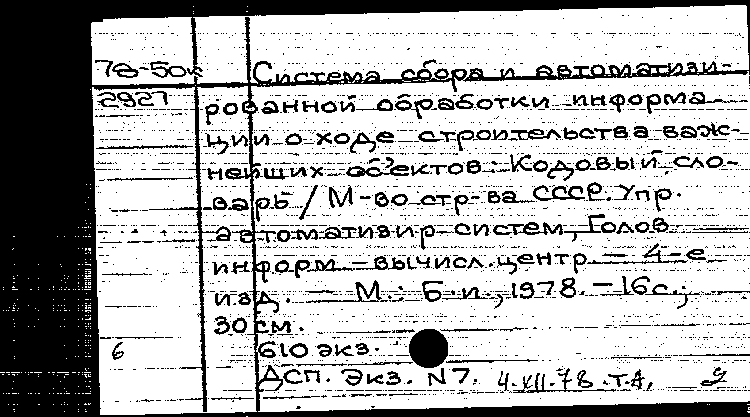 78-50к Система сбора и автоматизи-
2927 рованной обработки информа-
ции о ходе строительства важ-
нейших объектов: Кодовый сло-
варь / М-во стр-ва СССР. Упр.
автоматизир систем, Голов
информ-вычисл. центр. — 4-е
изд. — М.: Б.и., 1978. — 16с.;
30 см.
6 610 экз.
ДСП. Экз. N7. 4.XII.78. Т.А.